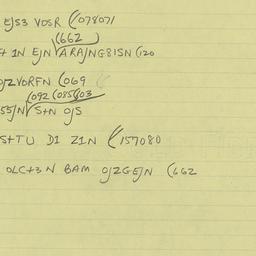 EJS3 VOSR (078071
(662
+ IN EJN ARAJNG81SN (120
OJZVORFN (069
(092 (085(03
55JN S+N OJS
S+TU DI Z1N (157080
OLC+3N BAM OJZGEJN (662